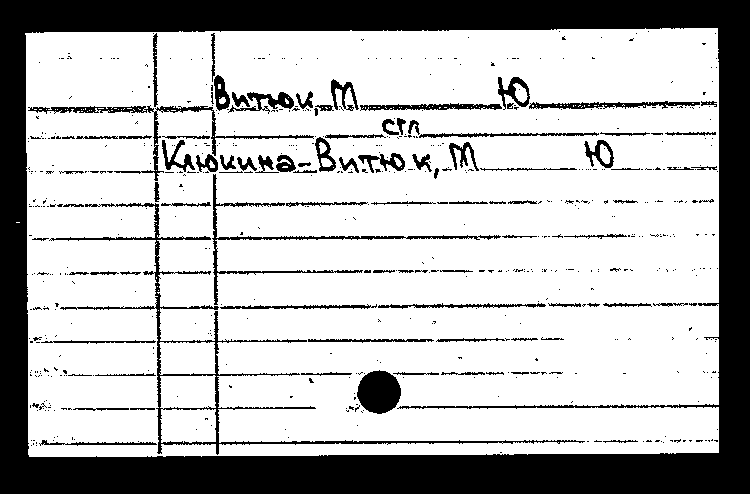 Витюк, М Ю
см
Клюкина-Витюк, М Ю